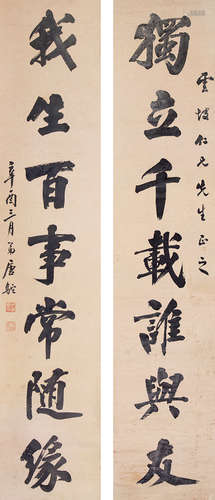 獨立千載誰與友
雲坡仁兄先生正之
我生百事常随緣
辛酉三月